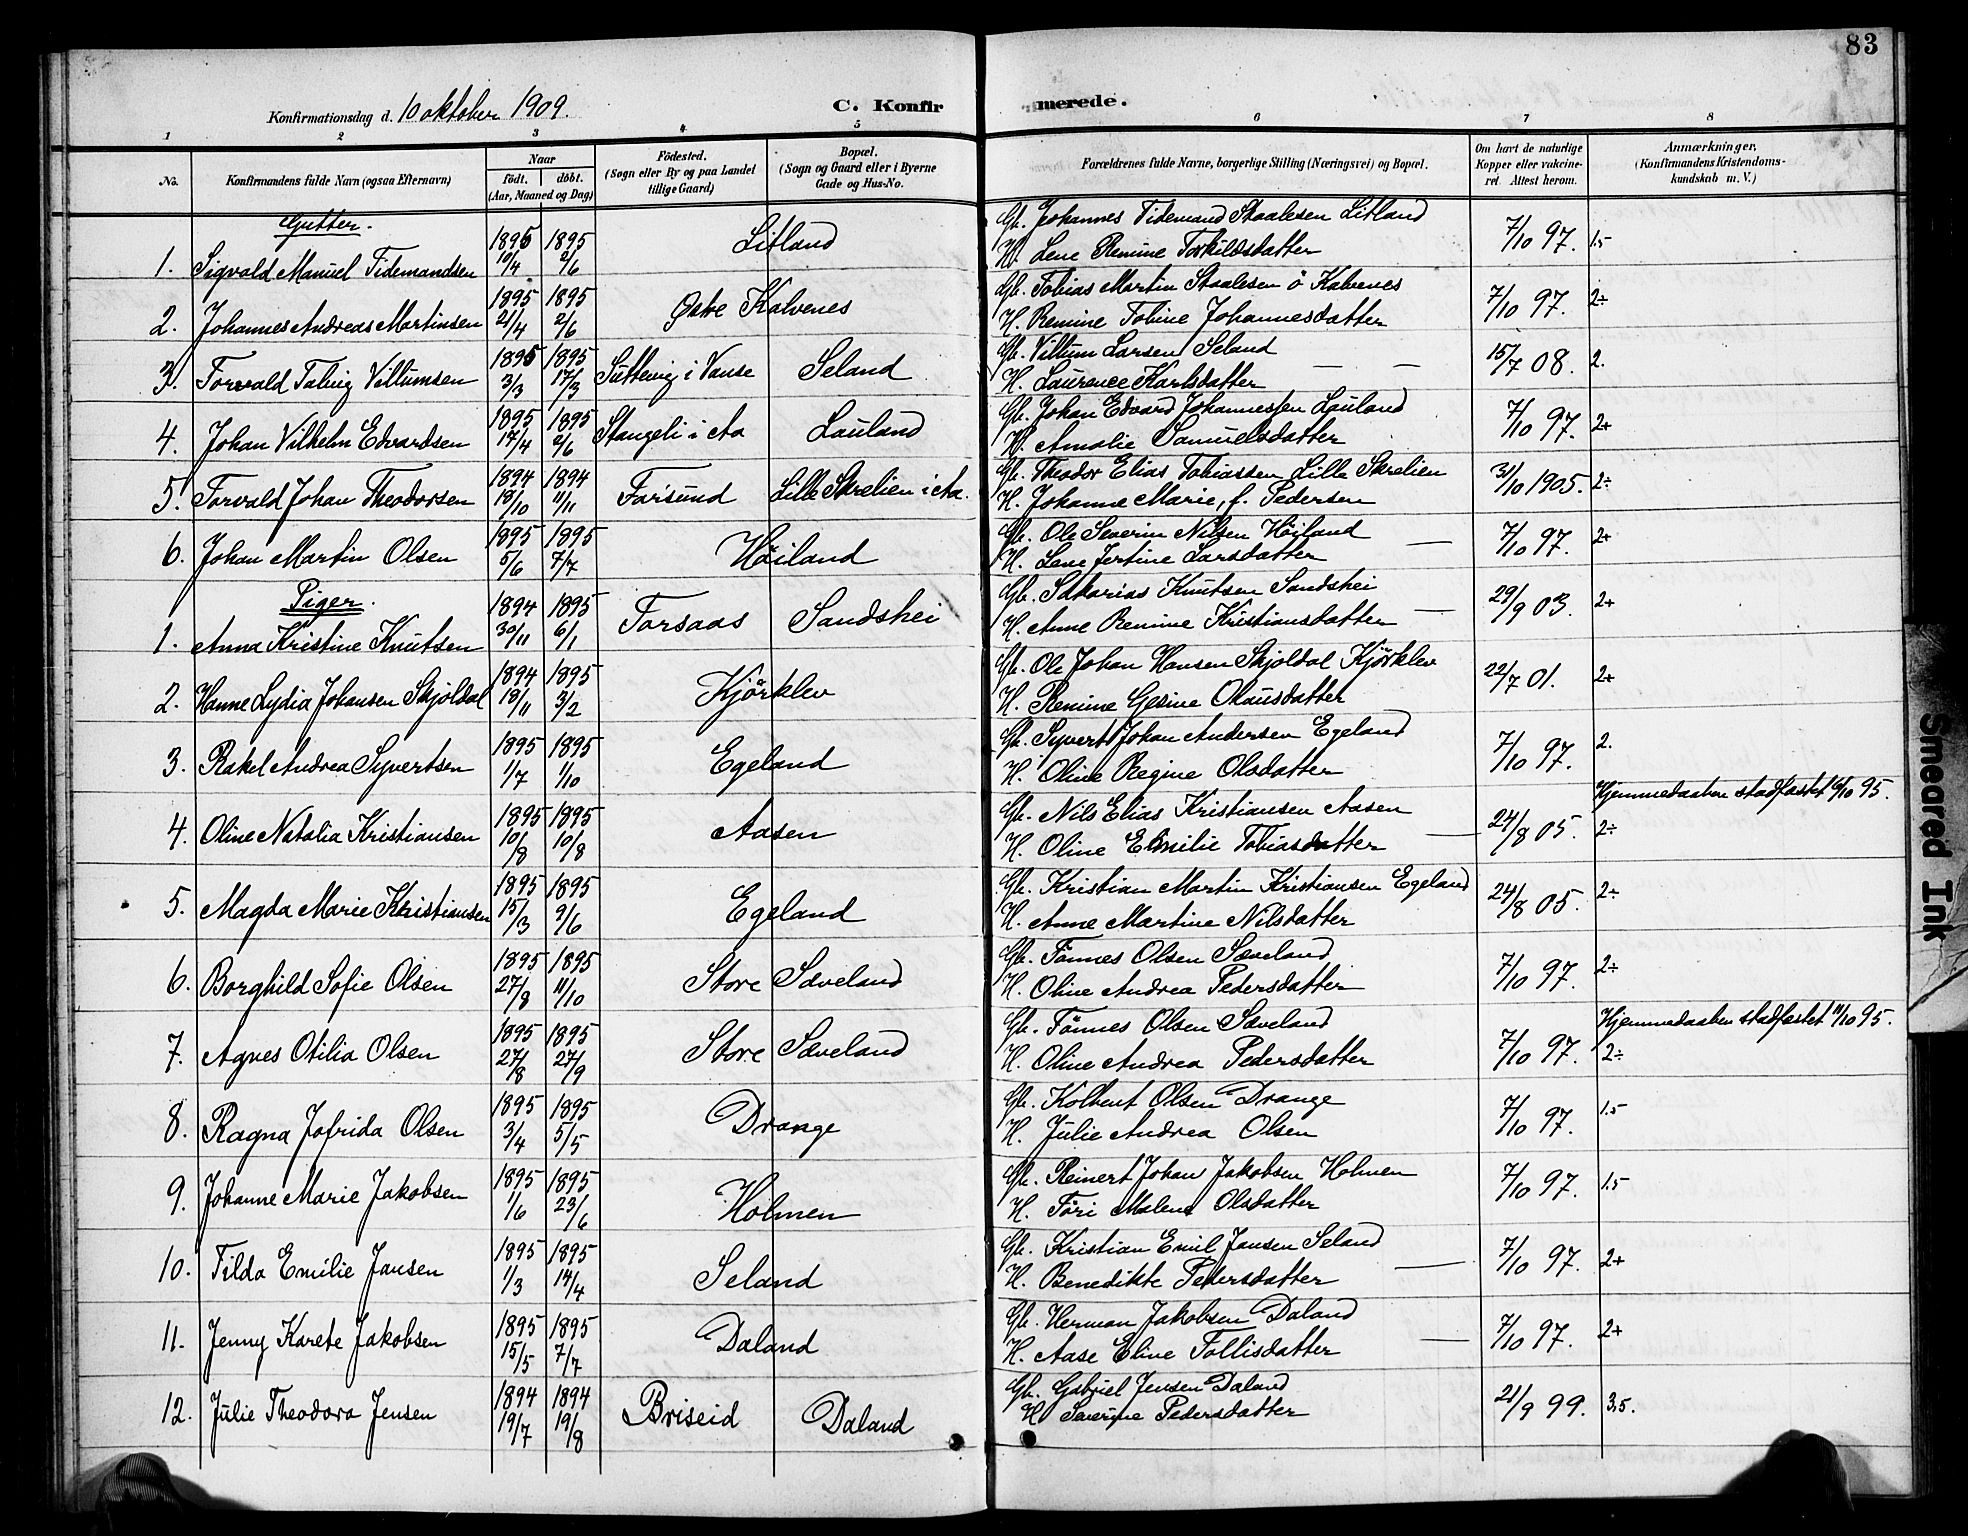 83
Konfirmationsdag d. 10 oktober 1909.
C. Konfirmerede.
1 2 3 4 5 6 7 8
No. | Konfirmandens fulde Navn (ogsaa Efternavn) | Naar födt. döbt. (Aar, Maaned og Dag) | Födested. (Sogn eller By og paa Landet tillige Gaard) | Bopæl. (Sogn og Gaard eller i Byerne Gade og Hus-No. | Forældrenes fulde Navne, borgerlige Stilling (Næringsvei) og Bopæl. | Om havt de naturlige Kopper eller vakcineret. Attest herom. | Anmærkninger. (Konfirmandens Kristendomskundskab m. V.)
Gutter.
1. Sigvald Manuel Tidemandsen | 1895 10/4 | 1895 2/6 | Litland | Gb. Johannes Tidemand Staalesen Litland H. Lene Remine Torkildsdatter | 7/10 97. | 1.5
2. Johannes Andreas Martinsen | 1895 21/4 | 1895 2/6 | Østre Kalvenes | Gb. Tobias Martin Staalesen ö Kalvenes H. Remine Tobine Johannesdatter | 7/10 97. | 2÷
3. Torvald Tabing Villumsen | 1895 3/3 | 1895 17/3 | i Vanse | Seland | Gb. Villum Larsen Seland H. Laurence Karlsdatter | 15/7 08. | 2.
4. Johan Vilhelm Edvardsen | 1895 17/4 | 1895 2/6 | Stangeli i Aa | Lauland | Gb. Johan Edvard Johannessen Lauland H. Amalie Samuelsdatter | 7/10 97. | 2+
5. Torvald Johan Theodorsen | 1894 18/10 | 1894 11/11 | Farsund | Lille Skrelien i Aa. | Gb. Theodor Elias Tobiassen Lille Skrelien H. Johanne Marie, f. Pedersen | 31/10 1905. | 2÷
6. Johan Martin Olsen | 1895 5/6 | 1895 7/7 | Höiland | Gb. Ole Severin Nilsen Höiland H. Lene Jertine Larsdatter | 7/10 97. | 2+
Piger.
1. Anna Kristine Knutsen | 1894 30/11 | 1895 6/1 | Forsaas | Sandshei | Gb. Sakarias Knutsen Sandshei H. Anne Remine Kristiansdatter | 29/9 03. | 2+
2. Hanne Lydia Johansen Skjoldal | 1894 18/11 | 1895 3/2 | Kjörklev | Gb. Ole Johan Hansen Skjoldal Kjörklev H. Remine Gesine Olausdatter | 22/7 01. | 2+
3. Rakel Andrea Syvertsen | 1895 1/7 | 1895 1/10 | Egeland | Gb. Syvert Johan Andersen Egeland H. Oline Regine Olsdatter | 7/10 97. | 2.
4. Oline Natalia Kristiansen | 1895 10/8 | 1895 10/8 | Aasen | Gb. Nils Elias Kristiansen Aasen H. Oline Emilie Tobiasdatter | 24/8 05. | Hjemmedaaben stadfæstet 6/10 95. 2÷
5. Magda Marie Kristiansen | 1895 15/3 | 1895 9/6 | Egeland | Gb. Kristian Martin Kristiansen Egeland H. Anne Martine Nilsdatter | 24/8 05. | 2÷
6. Borghild Sofie Olsen | 1895 27/8 | 1895 11/10 | Store Sæveland | Gb. Tönnes Olsen Sæveland H. Oline Andrea Pedersdatter | 7/10 97. | 2÷
7. Agnes Otilia Olsen | 1895 27/8 | 1895 27/9 | Store Sæveland | Gb. Tönnes Olsen Sæveland H. Oline Andrea Pedersdatter | 7/10 97. | Hjemmedaaben stadfæstet 11/10 95. 2÷
8. Ragna Jofrida Olsen | 1895 3/4 | 1895 5/5 | Drange | Gb. Kolbent Olsen Drange H. Julie Andrea Olsen | 7/10 97. | 1.5
9. Johanne Marie Jakobsen | 1895 1/6 | 1895 23/6 | Holmen | Gb. Reinert Johan Jakobsen Holmen H. Töri Malene Olsdatter | 7/10 97. | 1.5
10. Tilda Emilie Jansen | 1895 1/3 | 1895 14/4 | Seland | Gb. Kristian Emil Jansen Seland H. Benedikte Pedersdatter | 7/10 97. | 2+
11. Jenny Karete Jakobsen | 1895 15/5 | 1895 7/7 | Daland | Gb. Herman Jakobsen Daland H. Aase Eline Tollisdatter | 7/10 97. | 2+
12. Julie Theodora Jensen | 1894 19/7 | 1894 19/8 | Briseid | Daland | Gb. Gabriel Jensen Daland H. Severine Pedersdatter | 21/9 99. | 3.5.
Smeared Ink